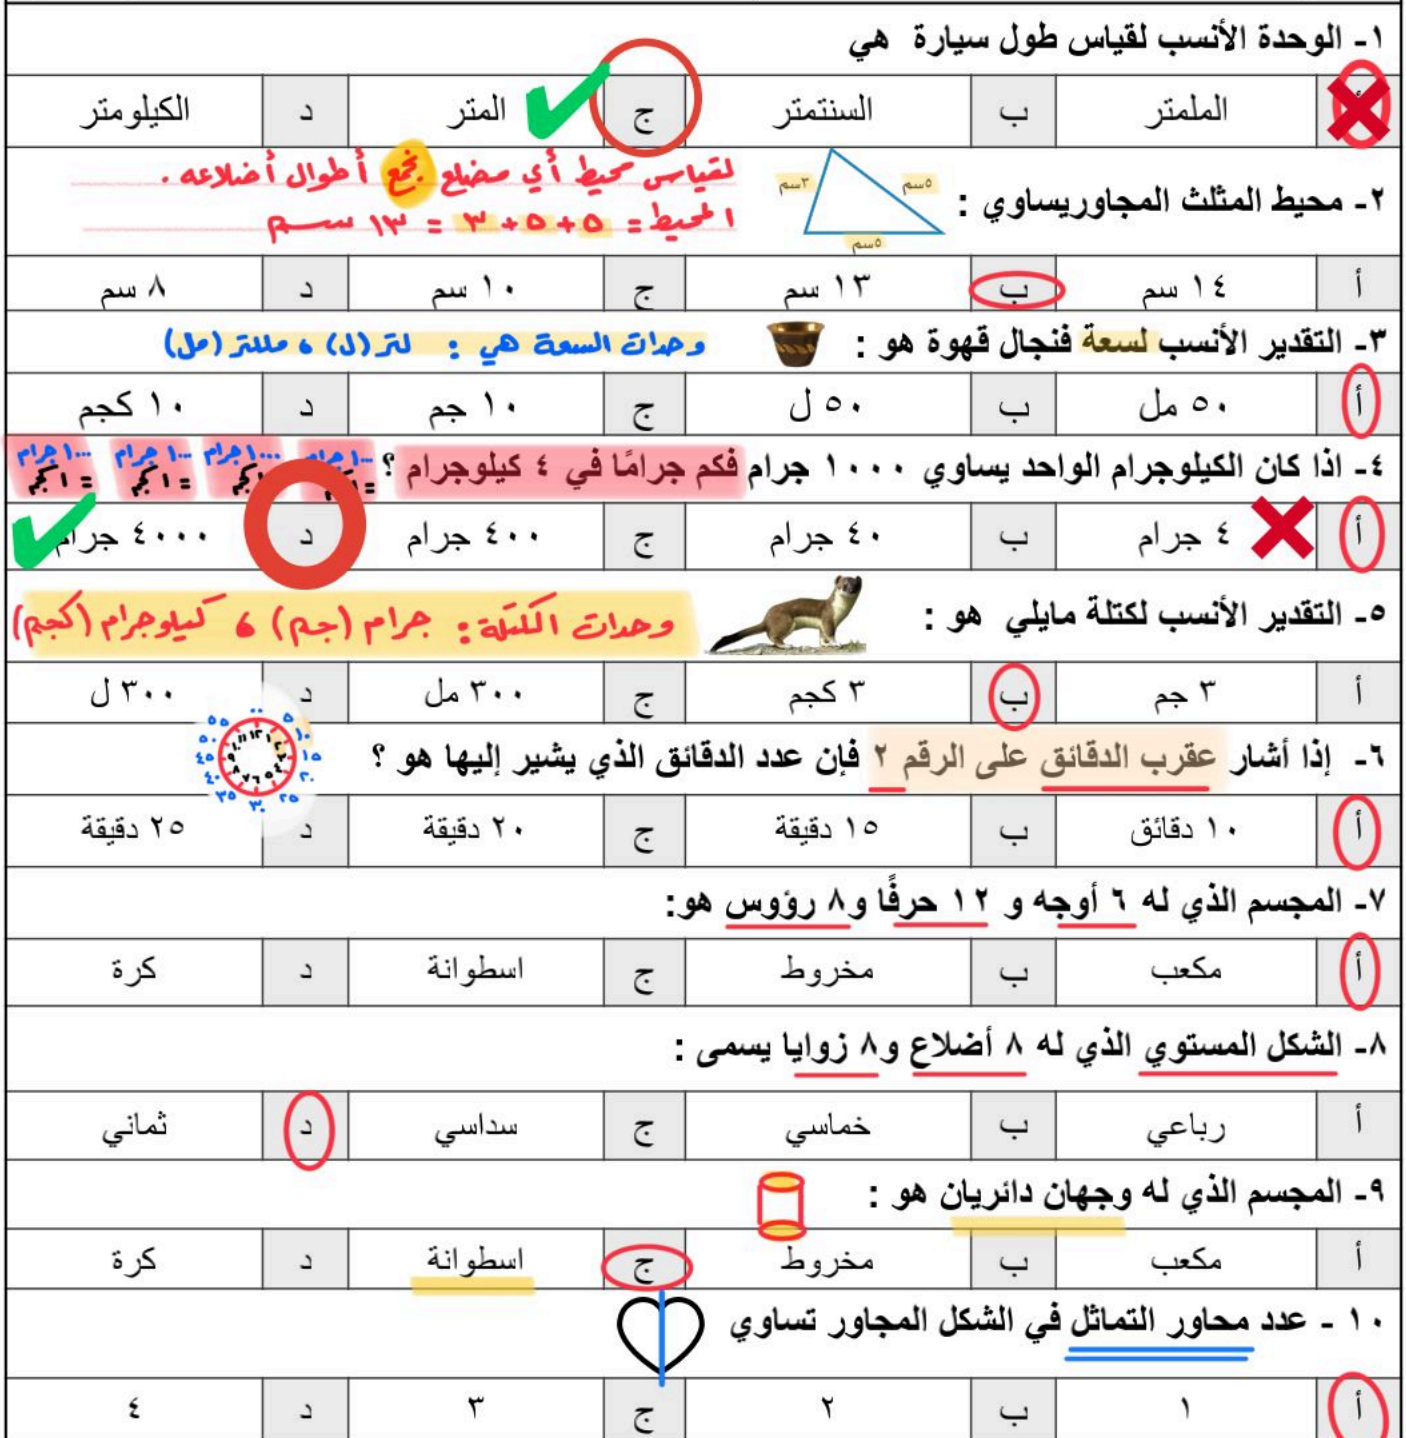 ١- الوحدة الأنسب لقياس طول سيارة هي
أ الملمتر ب السنتمتر ج المتر د الكيلومتر
لقياس محيط أي مضلع نجمع أطوال أضلاعه .
المحيط = ٥ + ٥ + ٣ = ١٣ سم
٢- محيط المثلث المجاوريساوي :
٥سم ٣سم
٥سم
أ ١٤ سم ب ١٣ سم ج ١٠ سم د ٨ سم
٣- التقدير الأنسب لسعة فنجال قهوة هو :
وحدات السعة هي : لتر (ل) ، مللتر (مل)
أ ٥٠ مل ب ٥٠ ل ج ١٠ جم د ١٠ كجم
٤- اذا كان الكيلوجرام الواحد يساوي ١٠٠٠ جرام فكم جرامًا في ٤ كيلوجرام ؟
١٠٠٠ جرام ١٠٠٠ جرام ١٠٠٠ جرام ١٠٠٠ جرام
= ١ كجم = ١ كجم
أ ٤ جرام ب ٤٠ جرام ج ٤٠٠ جرام د ٤٠٠٠ جرام
٥- التقدير الأنسب لكتلة مايلي هو :
وحدات الكتلة : جرام (جم) ، كيلوجرام (كجم)
أ ٣ جم ب ٣ كجم ج ٣٠٠ مل د ٣٠٠ ل
٦- إذا أشار عقرب الدقائق على الرقم ٢ فإن عدد الدقائق الذي يشير إليها هو ؟
٠٠ ٥ ١٠ ١٥ ٢٠ ٢٥ ٣٠ ٣٥ ٤٠ ٤٥ ٥٠ ٥٥
١٢ ١ ٢ ٣ ٤ ٥ ٦ ٧ ٨ ٩ ١٠ ١١
أ ١٠ دقائق ب ١٥ دقيقة ج ٢٠ دقيقة د ٢٥ دقيقة
٧- المجسم الذي له ٦ أوجه و ١٢ حرفًا و٨ رؤوس هو:
أ مكعب ب مخروط ج اسطوانة د كرة
٨- الشكل المستوي الذي له ٨ أضلاع و٨ زوايا يسمى :
أ رباعي ب خماسي ج سداسي د ثماني
٩- المجسم الذي له وجهان دائريان هو :
أ مكعب ب مخروط ج اسطوانة د كرة
١٠ - عدد محاور التماثل في الشكل المجاور تساوي
أ ١ ب ٢ ج ٣ د ٤